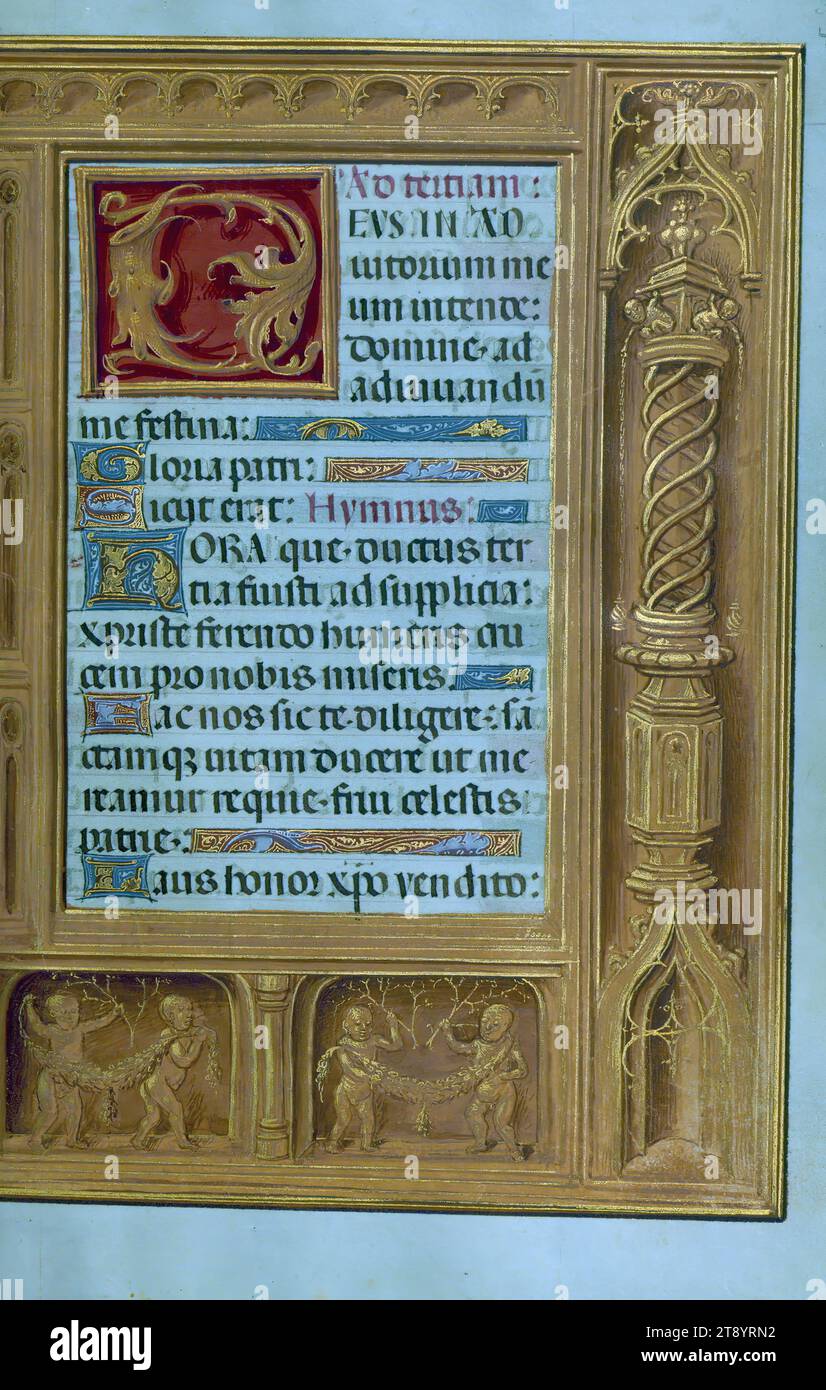 Ad tertiam:
DEUS IN AD
iutorium me
um intende:
domine·ad
adiuuandū
me festina:
Gloria patri:
Sicut erat: Hymnus:
HORA que·ductus ter
tia fuisti ad supplicia:
xp̄riste ferendo humeris cru
cem pro nobis miseris.
Fac nos sic te·diligere·: sā
ctamqȝ uitam ducere ut me
reamur requie·frui celestis
patrie·:
Laus honor xp̄o vendito:
alamy
Image ID: 2T8YRN2
www.alamy.com